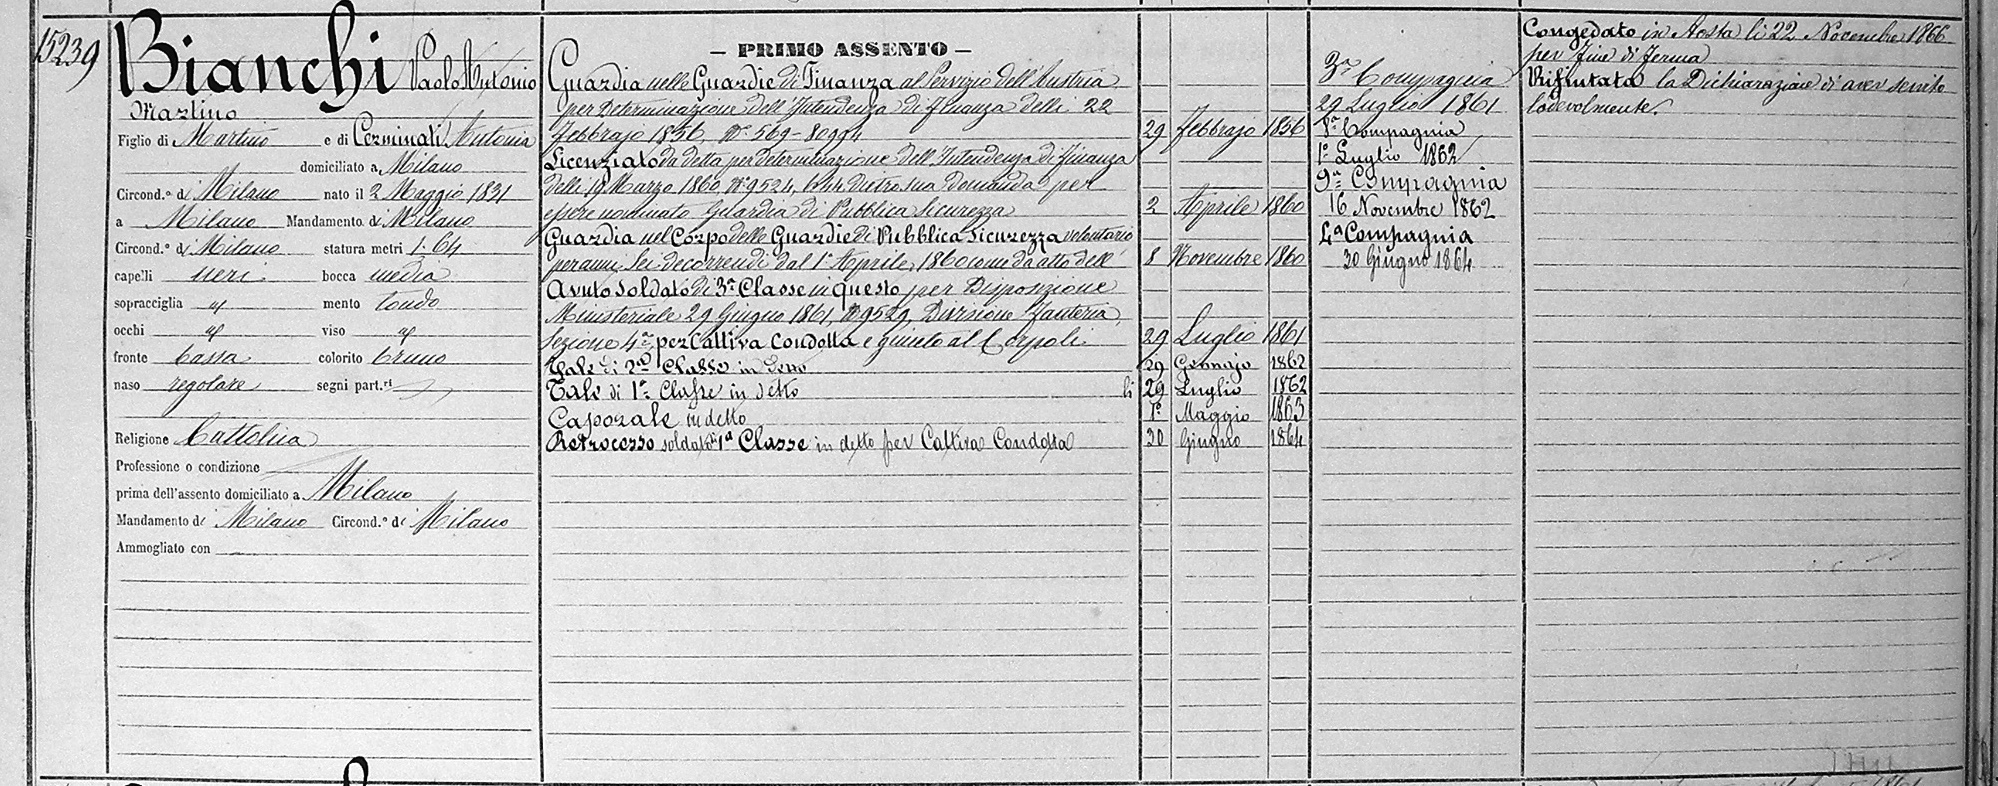 15239
Bianchi Paolo Antonio
Martino
Figlio di Martino e di Cerminati Antonia
domiciliato a Milano
Circond.° di Milano nato il 2 Maggio 1831
a Milano Mandamento di Milano
Circond.° di Milano statura metri 1.64
capelli neri bocca media
sopracciglia id mento tondo
occhi id viso id
fronte bassa colorito bruno
naso regolare segni part.ri
Religione Cattolica
Professione o condizione
prima dell'assento domiciliato a Milano
Mandamento di Milano Circond.° di Milano
Ammogliato con
— PRIMO ASSENTO —
Guardia nelle Guardie di Finanza al Servizio dell'Austria
per Determinazione dell'Intendenza di Finanza delli 22
Febbrajo 1856, N° 569- 29 Febbrajo 1856
Licenziato da detta per determinazione dell'Intendenza di Finanza
delli 19 Marzo 1860, N° 9524, dietro sua domanda per
essere nominato Guardia di Pubblica Sicurezza 2 Aprile 1860
Guardia nel Corpo delle Guardie di Pubblica Sicurezza volontario
per anni Sei decorrendi dal 1° Aprile 1860 come da atto dell' 8 Novembre 1860
Avuto Soldato di 3a Classe in questo per Disposizione
Ministeriale 29 Giugno 1861 N° 9529, Divisione Fanteria,
Sezione 4a, per Cattiva Condotta e giunto al Corpo li 29 Luglio 1861
Tale di 2a Classe in detto 29 Gennajo 1862
Tale di 1a Classe in detto li 29 Luglio 1862
Caporale in detto 1° Maggio 1863
Retrocesso soldato 1a Classe in detto per Cattiva Condotta 30 Giugno 1864
3a Compagnia
29 Luglio 1861
8a Compagnia
1° Luglio 1862
9a Compagnia
16 Novembre 1862
4a Compagnia
30 Giugno 1864
Congedato in Aosta li 22 Novembre 1866
per fine di ferma
Rifiutata la Dichiarazione di aver servito
lodevolmente.